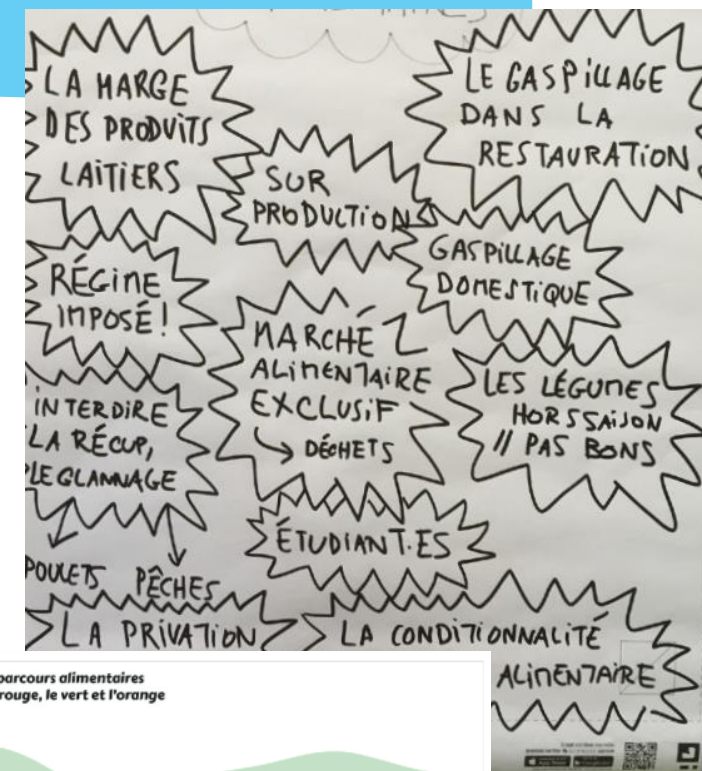 LA MARGE
DES PRODUITS
LAITIERS
LE GASPILLAGE
DANS LA
RESTAURATION
SUR
PRODUCTION
GASPILLAGE
DOMESTIQUE
RÉGIME
IMPOSÉ !
MARCHÉ
ALIMENTAIRE
EXCLUSIF
↳ DÉCHETS
LES LÉGUMES
HORS SAISON
// PAS BONS
INTERDIRE
LA RÉCUP,
LE GLANNAGE
POULETS PÊCHES
ÉTUDIANT·ES
LA PRIVATION
LA CONDITIONNALITÉ
ALIMENTAIRE
parcours alimentaires
rouge, le vert et l'orange